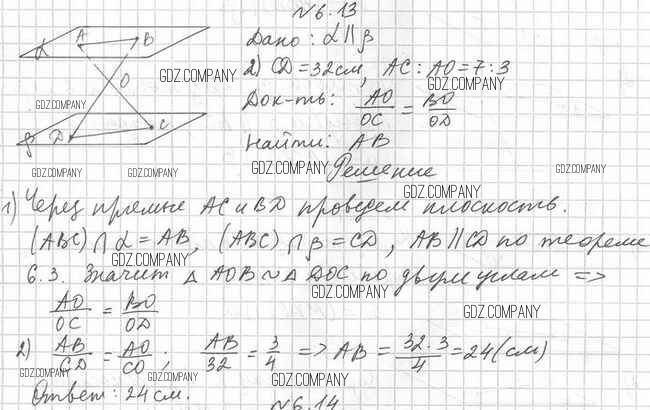 N6.13
Дано: α || β
2) CD = 32 см, AC : AO = 7 : 3
Док-ть: AO/OC = BO/OD
Найти: AB
Решение
1) Через прямые AC и BD проведем плоскость.
(ABC) ∩ α = AB, (ABC) ∩ β = CD, AB || CD по теореме
6.3. Значит △ AOB ~ △ DOC по двум углам =>
AO/OC = BO/OD
2) AB/CD = AO/CO; AB/32 = 3/4 => AB = 32·3/4 = 24 (см)
Ответ: 24 см.
N6.14
α
A
B
O
β
D
C
GDZ.COMPANY
GDZ.COMPANY
GDZ.COMPANY
GDZ.COMPANY
GDZ.COMPANY
GDZ.COMPANY
GDZ.COMPANY
GDZ.COMPANY
GDZ.COMPANY
GDZ.COMPANY
GDZ.COMPANY
GDZ.COMPANY
GDZ.COMPANY
GDZ.COMPANY